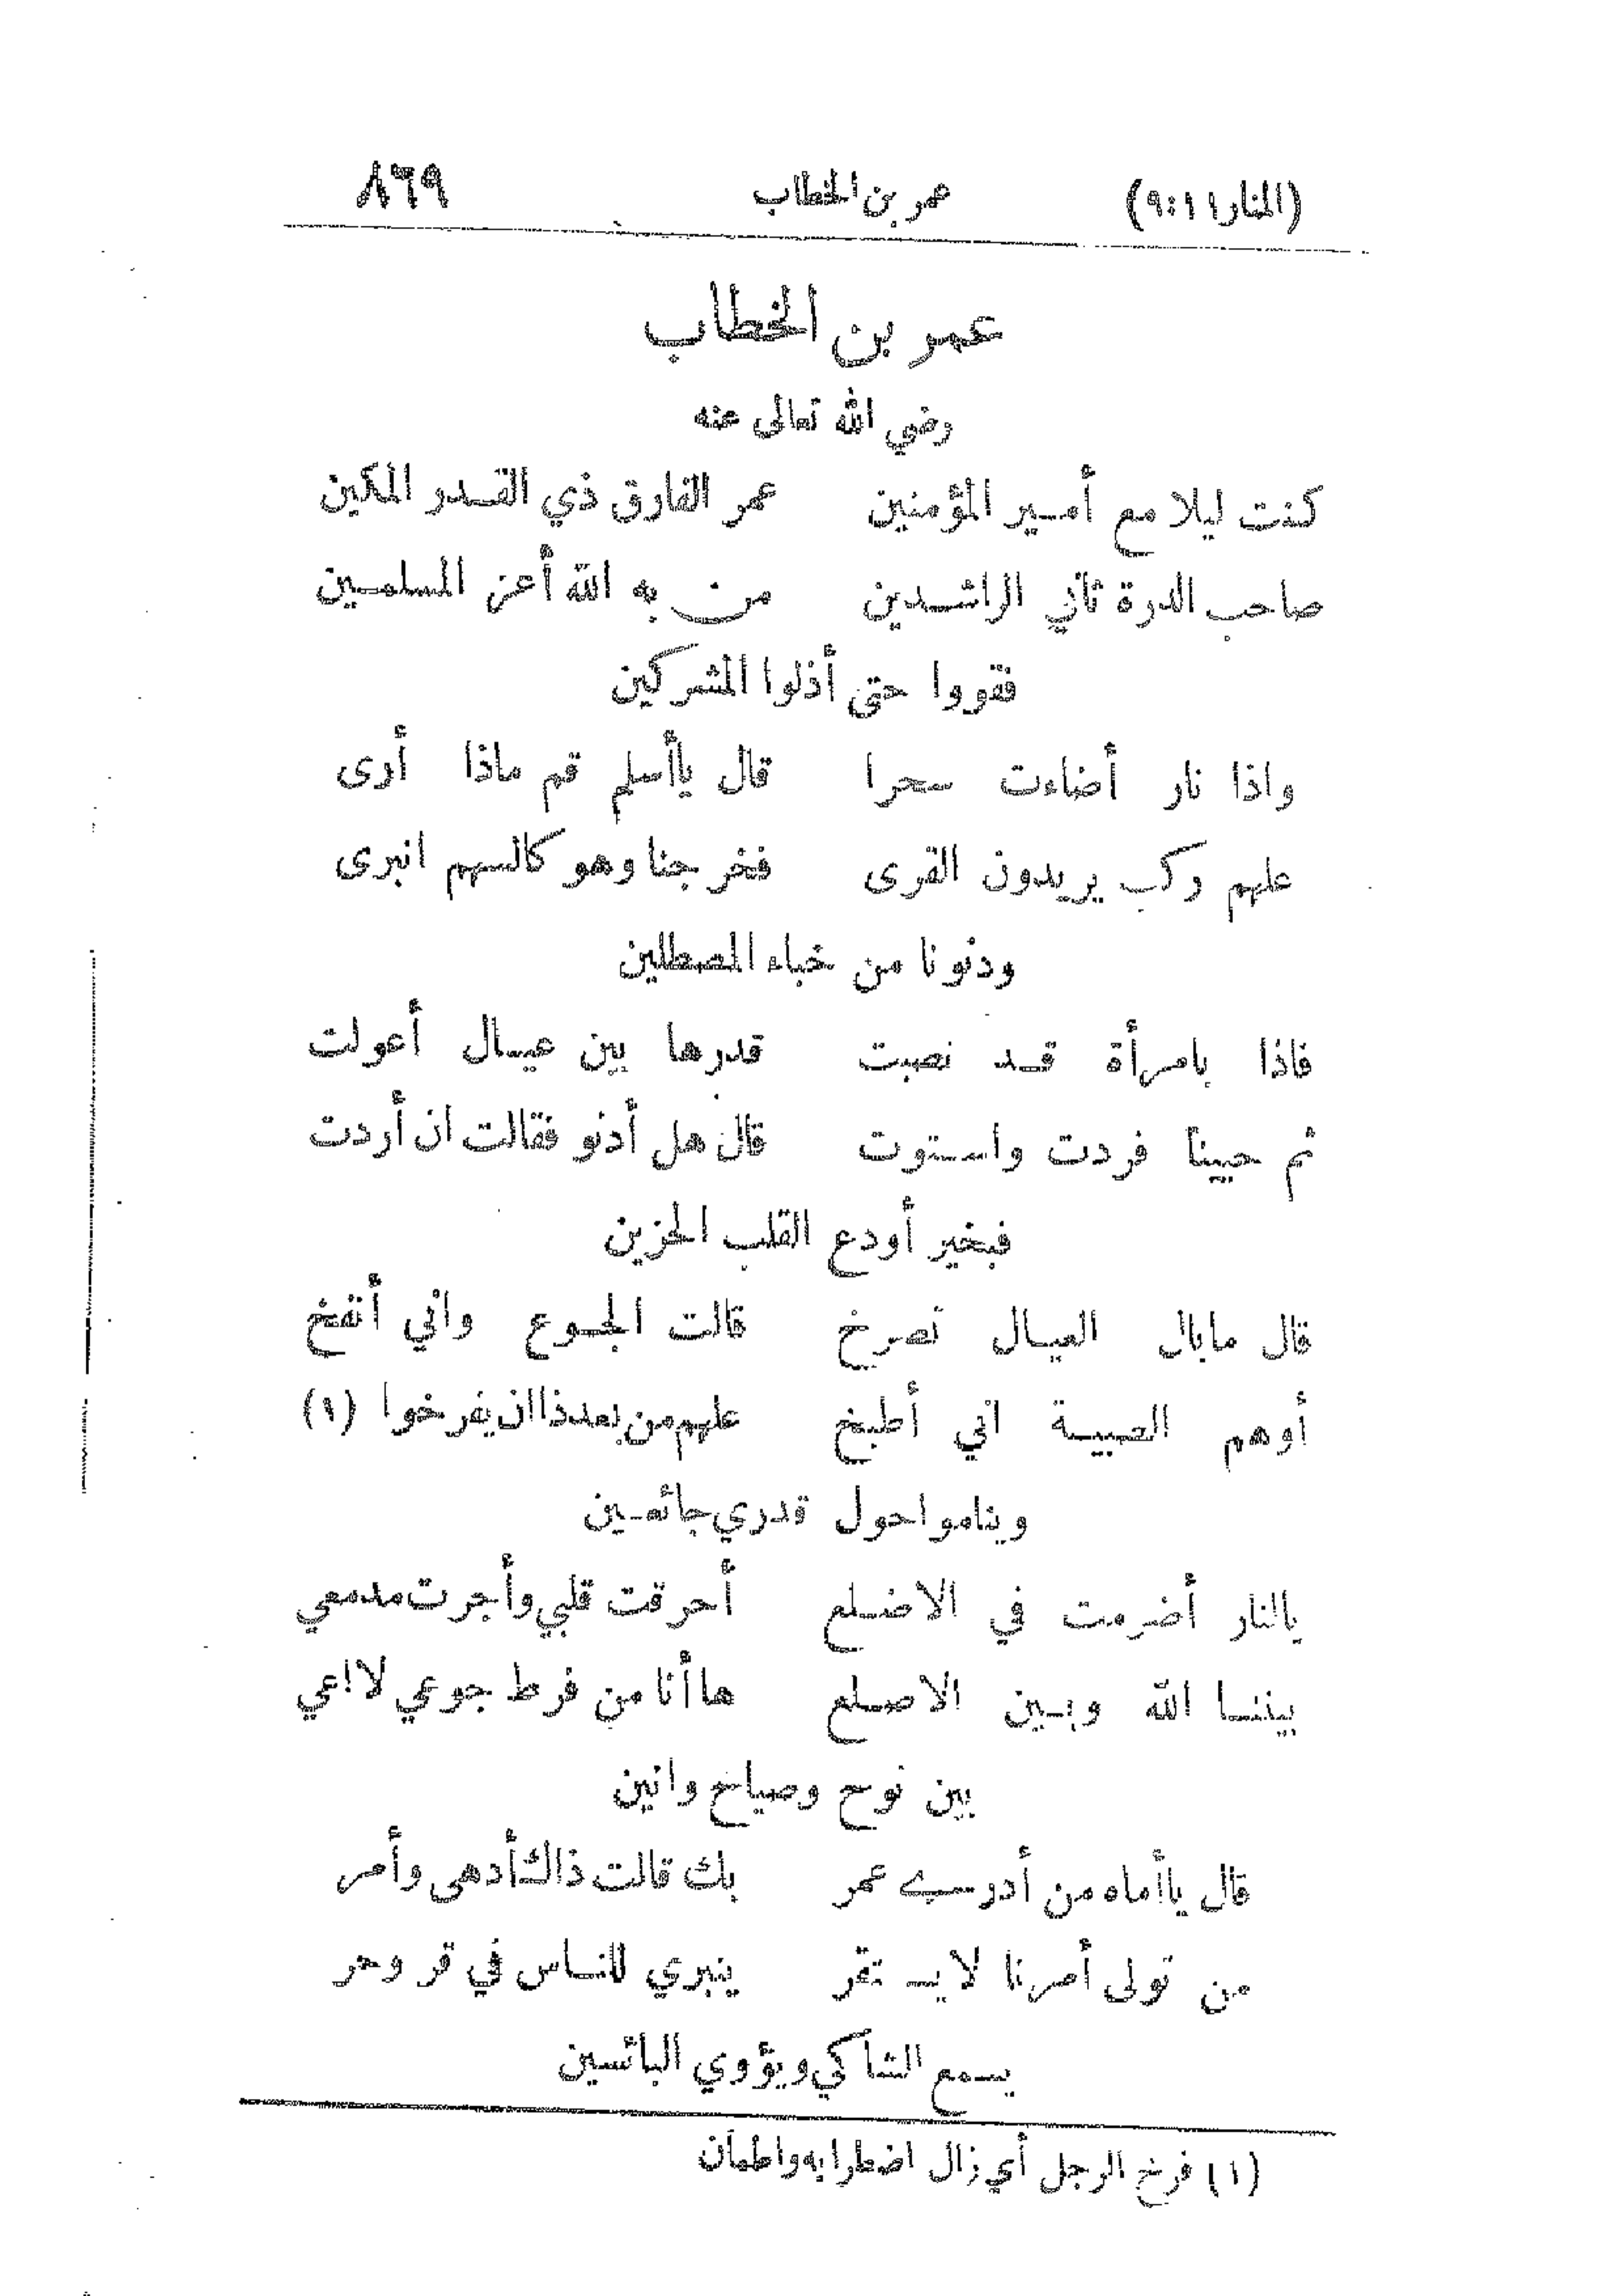 (المنار ١١:٩) عمر بن الخطاب ٨٦٩
عمر بن الخطاب
رضي الله تعالى عنه
كنت ليلا مع أمير المؤمنين عمر الفارق ذي القدر المكين
صاحب الدرة ثاني الراشدين من به الله أعز المسلمين
فقووا حتى أذلوا المشركين
واذا نار أضاءت سحرا قال ياأسلم قم ماذا أرى
علهم ركب يريدون القرى فخرجنا وهو كالسهم انبرى
ودنونا من خباء المصطلين
فاذا بامرأة قد نصبت قدرها بين عيال أعولت
ثم حيينا فردت واستوت قال هل أدنو فقالت ان أردت
فبخير أودع القلب الحزين
قال مابال العيال تصرخ قالت الجوع واني أنفخ
أوهم الصبية اني أطبخ علهم من بعد ذا ان يفرخوا (١)
ويناموا حول قدري جائعين
يالنار أضرمت في الاضلع أحرقت قلبي وأجرت مدمعي
بيننا الله وبين الاصلع ها أنا من فرط جوعي لا اعي
بين نوح وصياح وانين
قال ياأماه من أدرى عمر بك قالت ذاك أدهى وأمر
من تولى أمرنا لا يستقر ينبري للناس في قر وحر
يسمع الشاكي ويؤوي البائسين
(١) فرخ الرجل أي زال اضطرابه واطمأن